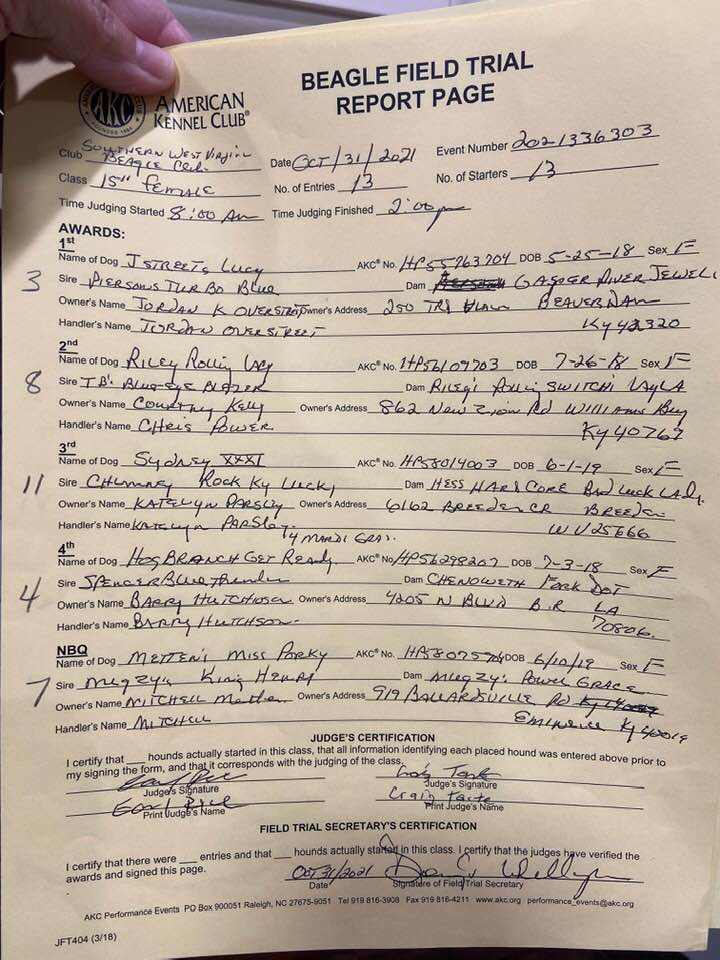 BEAGLE FIELD TRIAL
REPORT PAGE
AKC
FOUNDED 1884
AMERICAN
KENNEL CLUB®
Club Southern West Virginia Beagle Club Date Oct/31/2021 Event Number 2021336303
Class 15" Female No. of Entries 13 No. of Starters 13
Time Judging Started 8:00 Am Time Judging Finished 2:00 pm
AWARDS:
1st
Name of Dog J Streets Lucy AKC® No. HP55763704 DOB 5-25-18 Sex F
3 Sire Piersons Turbo Blue Dam Gasper River Jewell
Owner's Name Jordan K Overstreet Owner's Address 250 Beaver Dam
Handler's Name Jordan Overstreet Ky 42320
2nd
Name of Dog Riley Rollin Lacy AKC® No. HP56109703 DOB 7-26-18 Sex F
8 Sire Blue Eye Blazer Dam Riley's Rollin Switchi Layla
Owner's Name Courtney Kelly Owner's Address 862 New Zion Rd Williams Bug
Handler's Name Chris Power Ky 40769
3rd
Name of Dog Sydney XXXI AKC® No. HP58014003 DOB 6-1-19 Sex F
11 Sire Chimney Rock Ky Lucky Dam Hess Hard Core Bad Luck Lady
Owner's Name Katelyn Parsley Owner's Address 6162 Breeden CR Breeden
Handler's Name Katelyn Parsley WV 25666
4th
4 Mardi Gras
Name of Dog Hog Branch Get Ready AKC® No HP56298207 DOB 7-3-18 Sex F
4 Sire Spencer Blue Thunder Dam Chenoweth Fork Dot
Owner's Name Barry Hutchison Owner's Address 4205 N Blvd B.R LA
Handler's Name Barry Hutchson 70806
NBQ
Name of Dog Metten's Miss Porky AKC® No. HP58075704 DOB 6/10/19 Sex F
7 Sire Mugzy's King Henry Dam Mugzy's Power Grace
Owner's Name Mitchell Owner's Address 919 Ballardsville Rd
Handler's Name Mitchell Eminence Ky 40019
JUDGE'S CERTIFICATION
I certify that ___ hounds actually started in this class, that all information identifying each placed hound was entered above prior to
my signing the form, and that it corresponds with the judging of the class.
Judge's Signature Judge's Signature
Earl Craig
Print Judge's Name Print Judge's Name
FIELD TRIAL SECRETARY'S CERTIFICATION
I certify that there were ___ entries and that ___ hounds actually started in this class. I certify that the judges have verified the
awards and signed this page.
Oct 31/2021
Date Signature of Field Trial Secretary
AKC Performance Events PO Box 900051 Raleigh, NC 27675-9051 Tel 919 816-3908 Fax 919 816-4211 www.akc.org performance_events@akc.org
JFT404 (3/18)